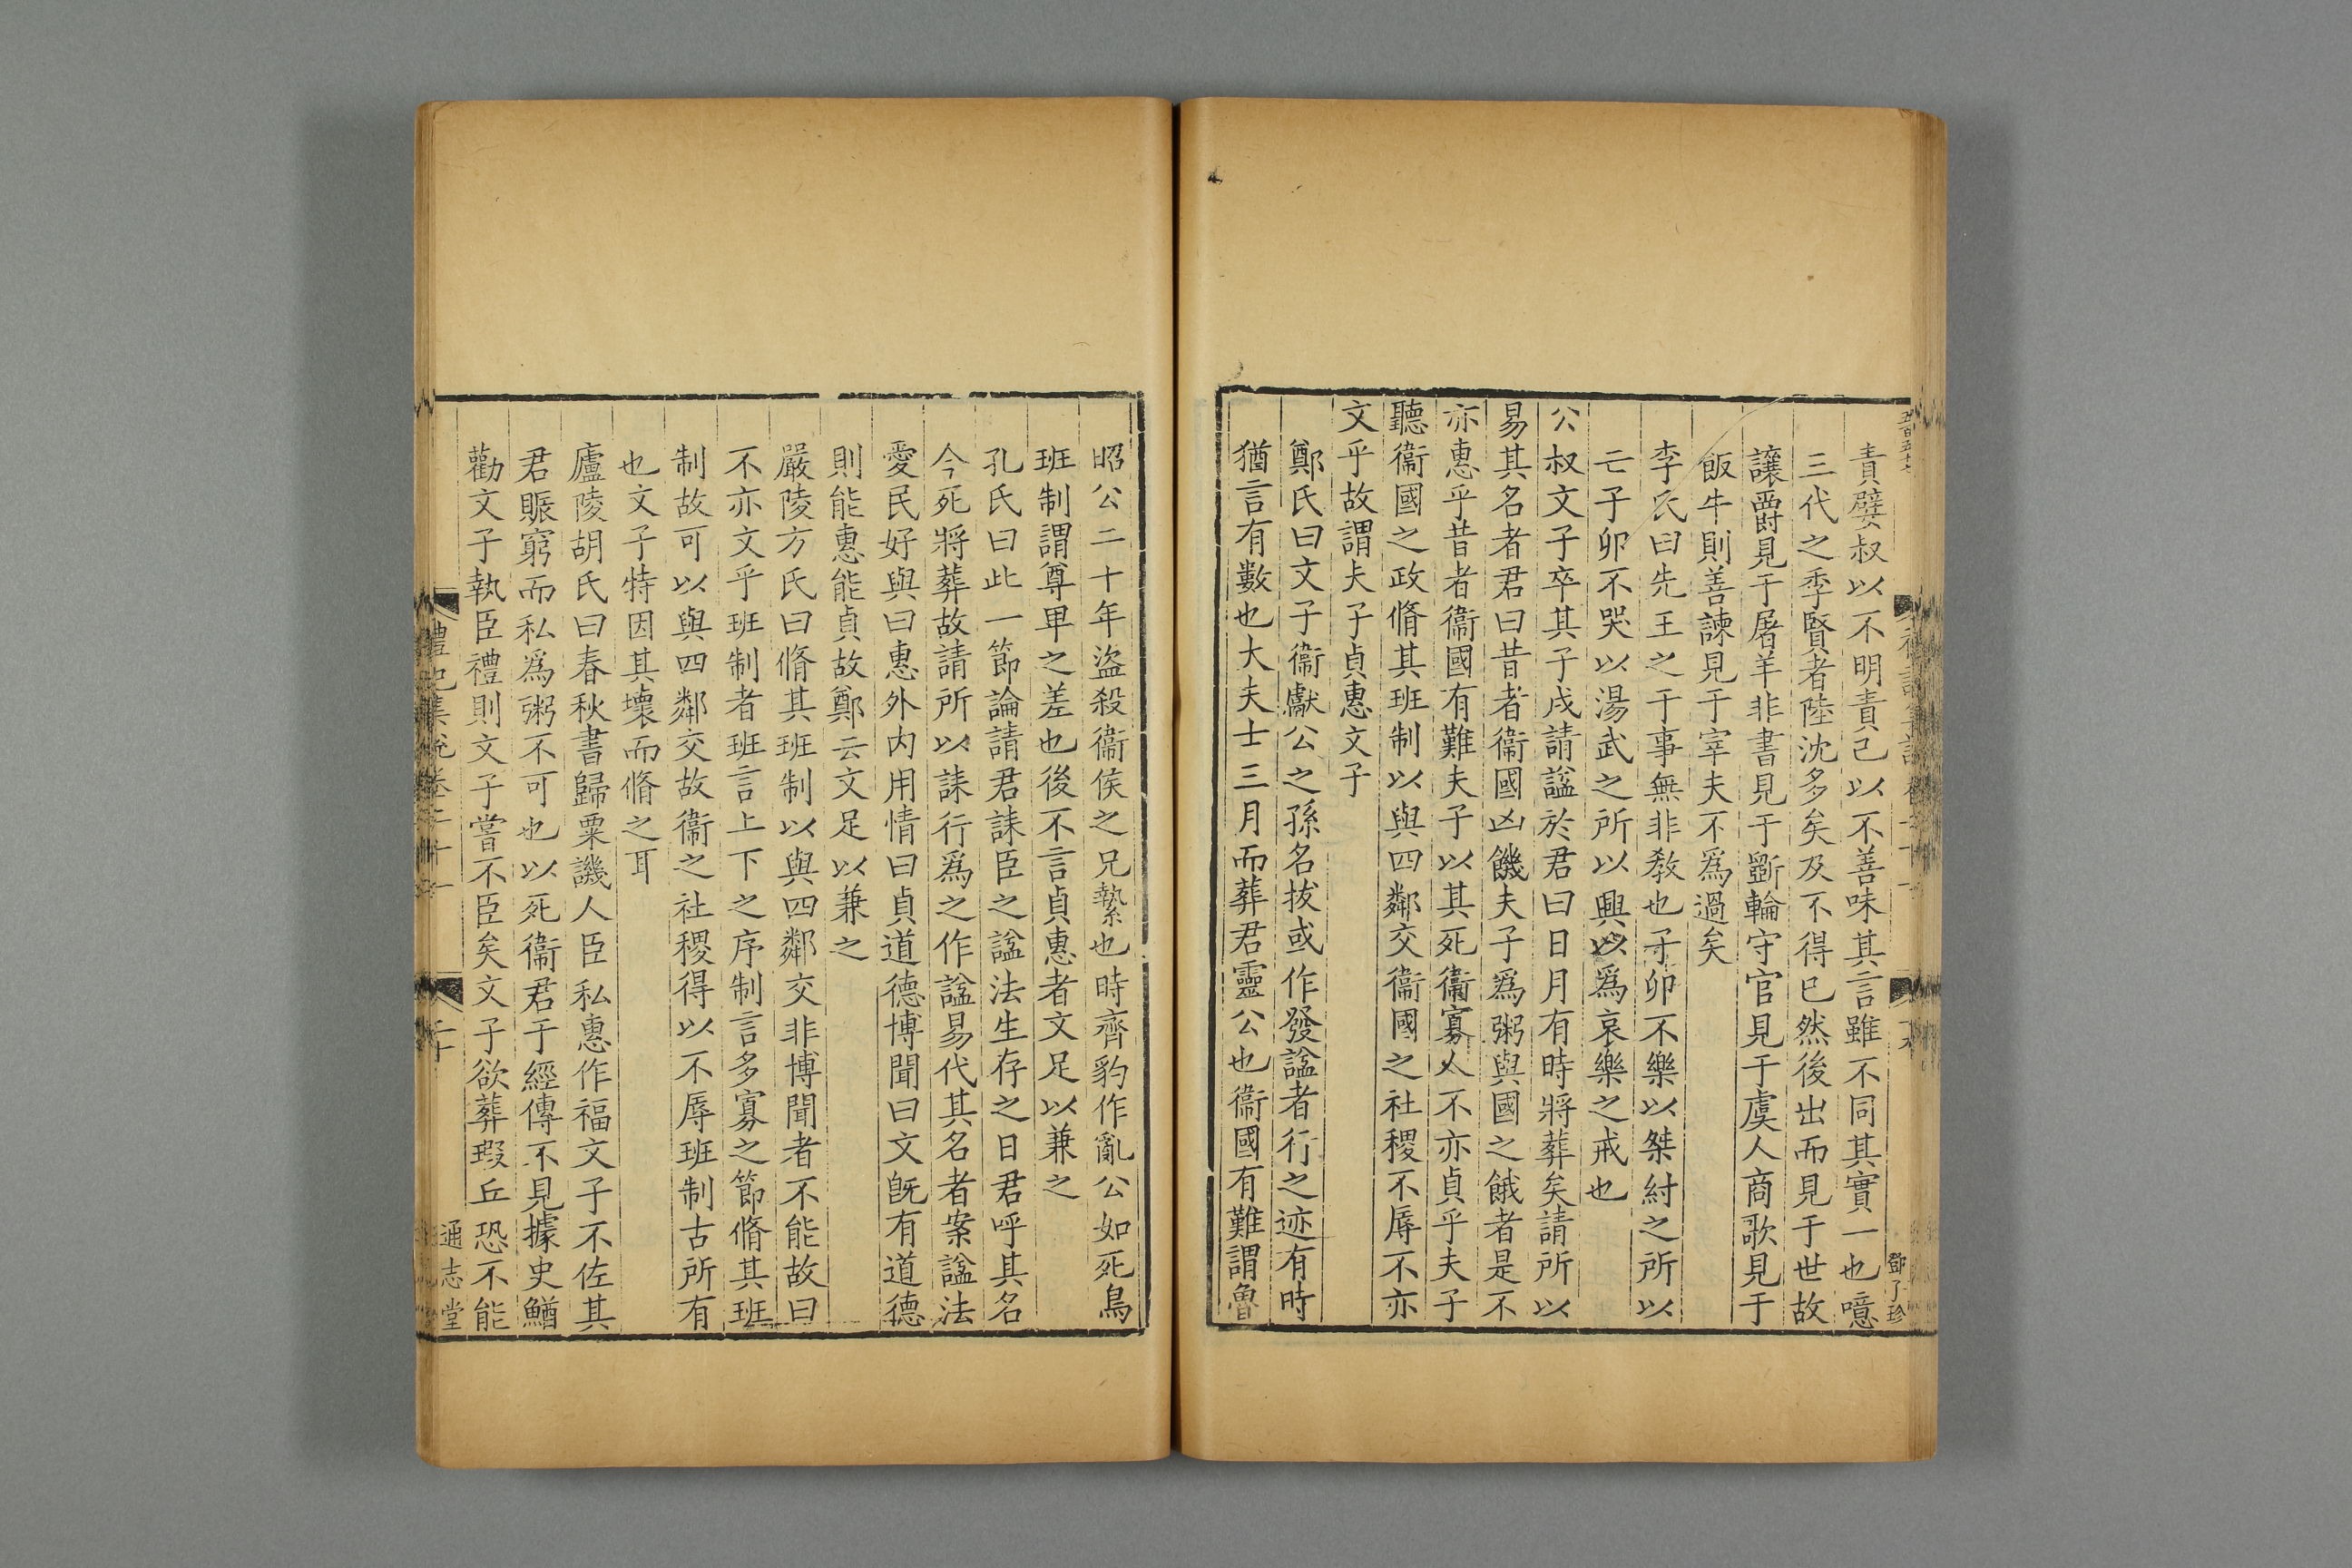 責嬖叔以不明責己以不善味其言雖不同其實一也噫
三代之季賢者陸沈多矣及不得已然後出而見于世故
讓爵見于屠羊非書見于斲輪守官見于虞人商歌見于
飯牛則善諫見于宰夫不爲過矣
李氏曰先王之于事無非敎也子卯不樂以桀紂之所以
亡子卯不哭以湯武之所以興以爲哀樂之戒也
公叔文子卒其子戍請諡於君曰日月有時將葬矣請所以
易其名者君曰昔者衞國凶饑夫子爲粥與國之餓者是不
亦惠乎昔者衞國有難夫子以其死衞寡人不亦貞乎夫子
聽衞國之政脩其班制以與四鄰交衞國之社稷不辱不亦
文乎故謂夫子貞惠文子
鄭氏曰文子衞獻公之孫名拔或作發諡者行之迹有時
猶言有數也大夫士三月而葬君靈公也衞國有難謂魯
鄧了珍
昭公二十年盜殺衞侯之兄縶也時齊豹作亂公如死鳥
班制謂尊卑之差也後不言貞惠者文足以兼之
孔氏曰此一節論請君誄臣之諡法生存之日君呼其名
今死將葬故請所以誄行爲之作諡易代其名者案諡法
愛民好與曰惠外内用情曰貞道德博聞曰文旣有道德
則能惠能貞故鄭云文足以兼之
嚴陵方氏曰脩其班制以與四鄰交非博聞者不能故曰
不亦文乎班制者班言上下之序制言多寡之節脩其班
制故可以與四鄰交故衞之社稷得以不辱班制古所有
也文子特因其壞而脩之耳
廬陵胡氏曰春秋書歸粟譏人臣私惠作福文子不佐其
君賑窮而私爲粥不可也以死衞君于經傳不見據史鰌
勸文子執臣禮則文子嘗不臣矣文子欲葬瑕丘恐不能
禮記集說卷二十一
二十
通志堂